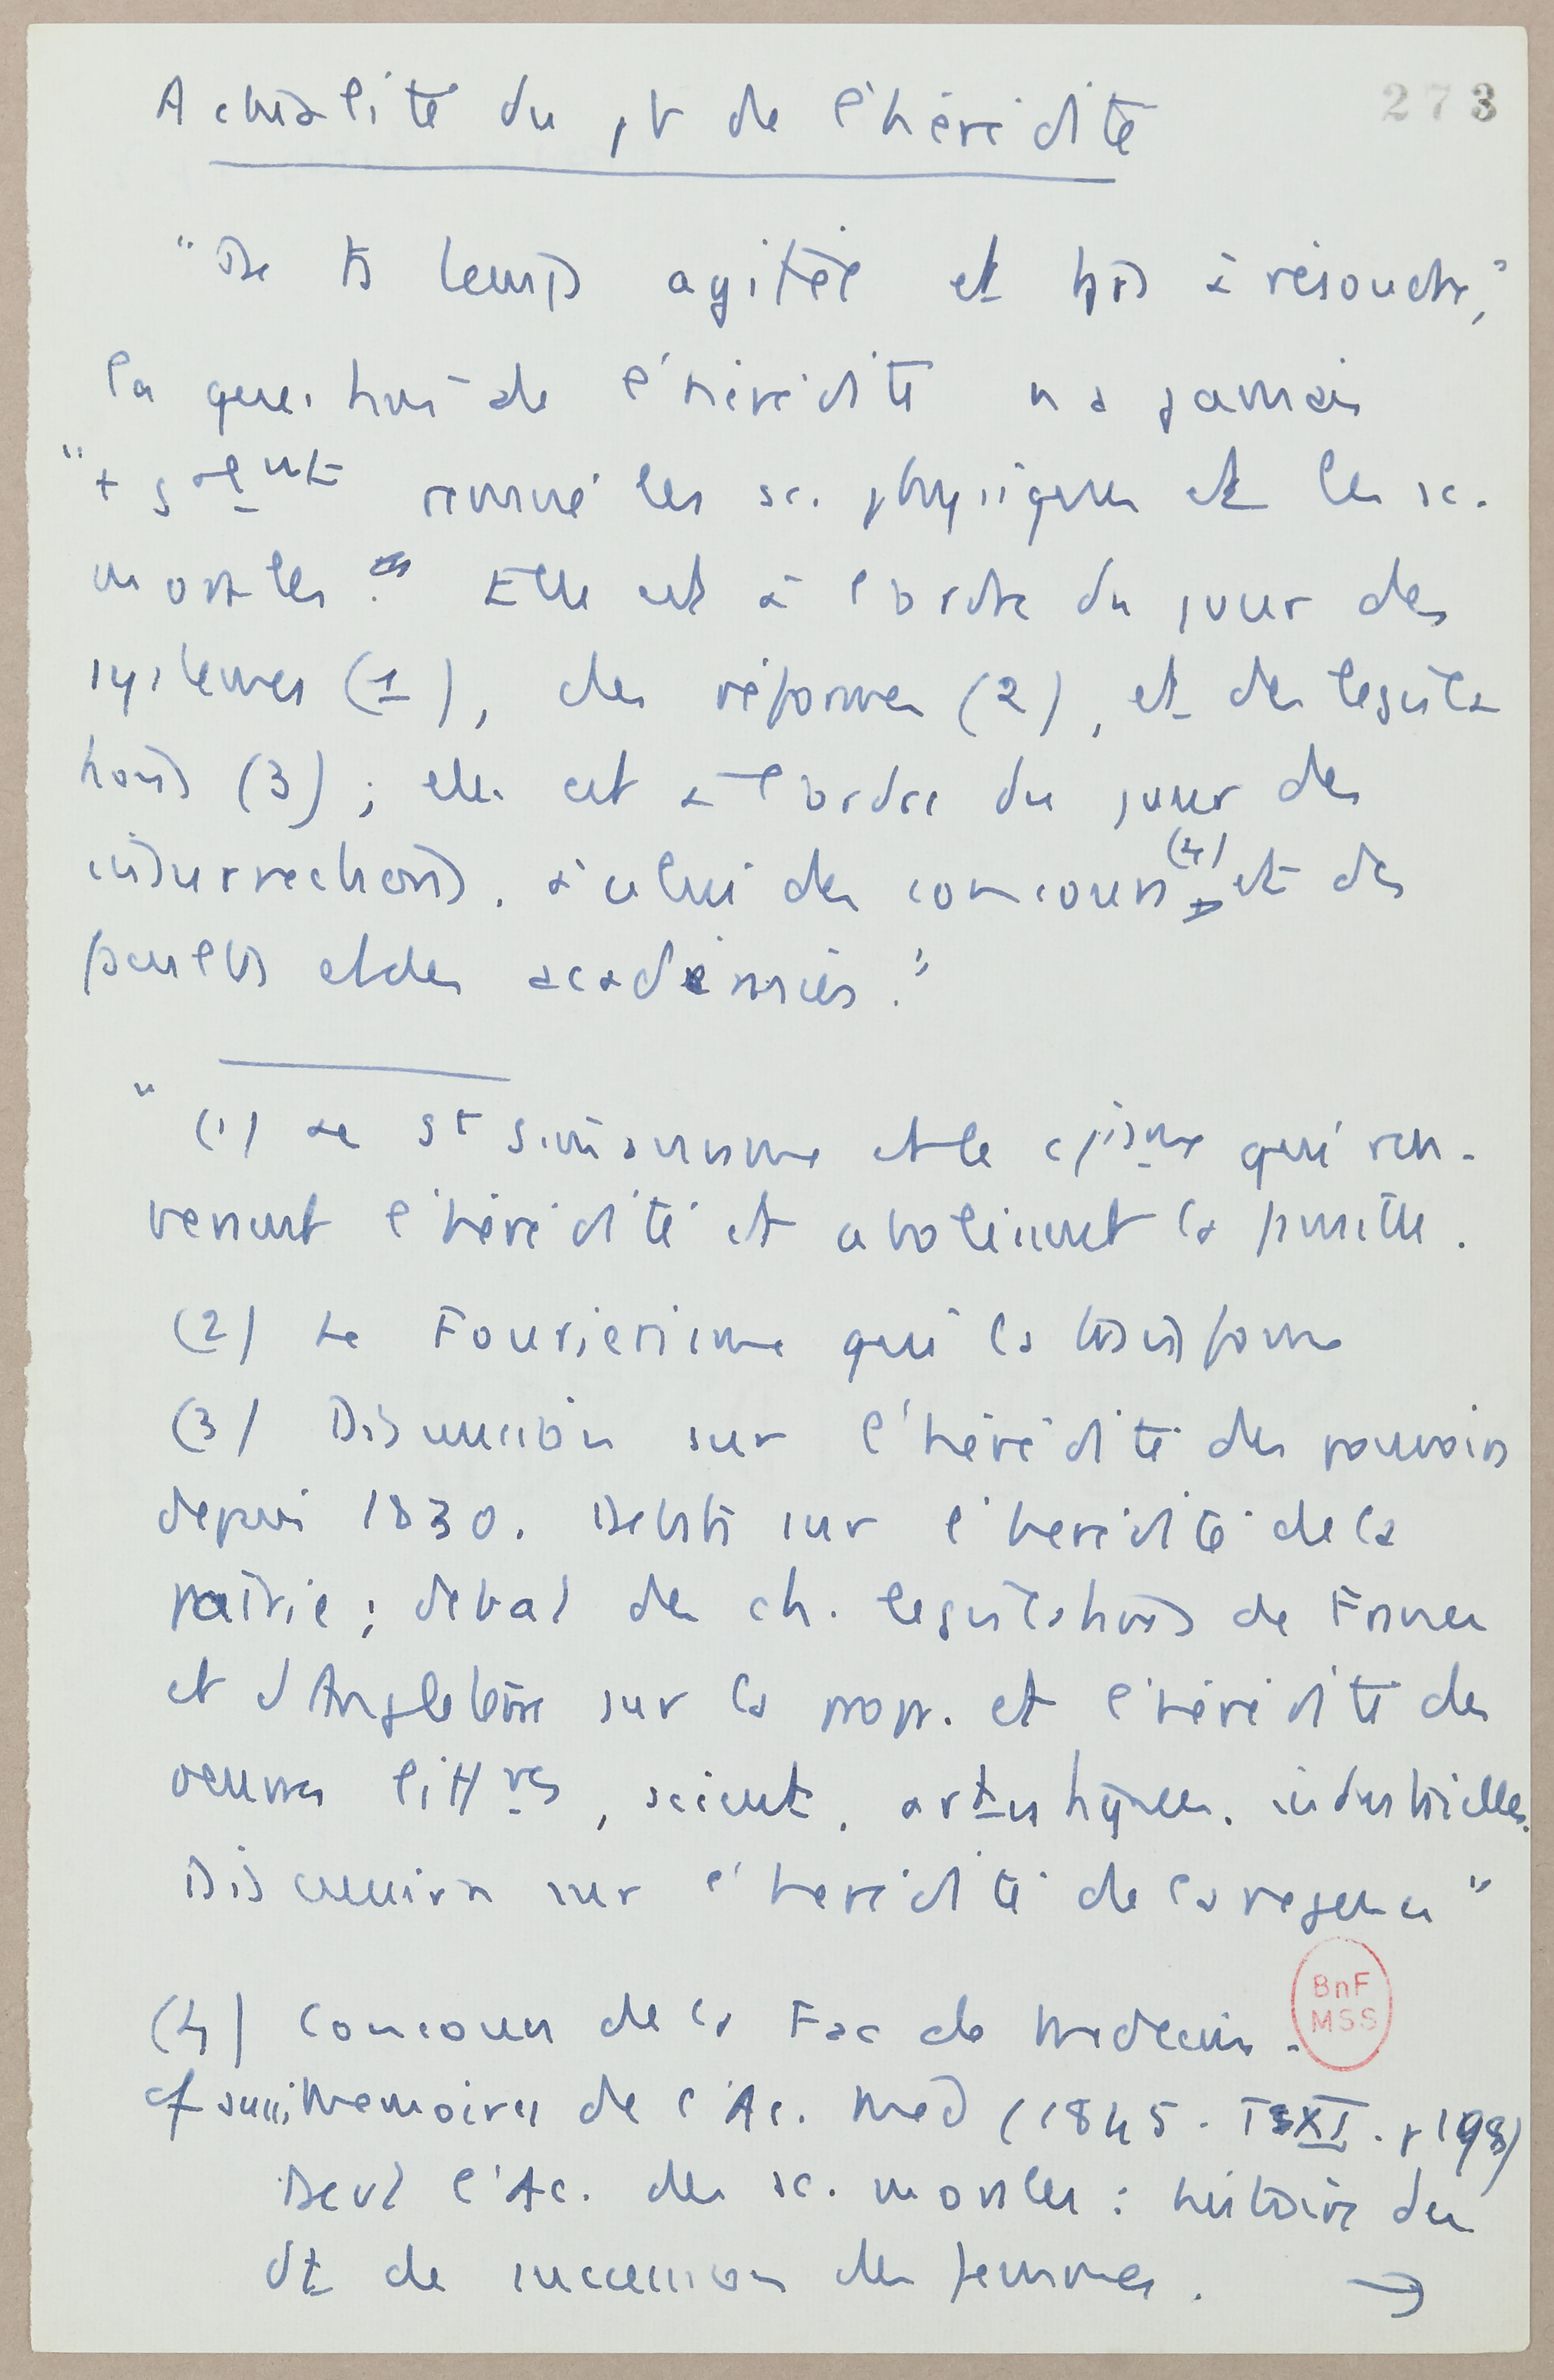 Actualité du pb de l'hérédité
273
"De ts temps agitée et tjrs à résoudre,"
la question de l'hérédité n'a jamais
"+ gralemt remué les sc. physiques et les sc.
morales." Elle est à l'ordre du jour des
systèmes (1), des réformes (2), et des législa
tions (3) ; elle est à l'ordre du jour des
insurrections, à celui des concours (4) et des
facultés et des académies."
" (1) Le St Simonisme et le cisme qui ren-
versent l'hérédité et abolissent la famille.
(2) Le Fouriérisme qui la transforme
(3) Discussion sur l'hérédité des pouvoirs
depuis 1830. Débats sur l'hérédité de la
pairie ; débat des ch. législations de France
et d'Angleterre sur la propr. et l'hérédité des
oeuvres littres, scient, artistiques, industrielles.
Discussion sur l'hérédité de la régence"
(4) Concours de la Fac de Médecine.
BnF
MSS
cf aussi Memoires de l'Ac. Med (1845. T XI. p 198)
Devt l'Ac. des sc. morales : histoire du
dt de succession des femmes. →